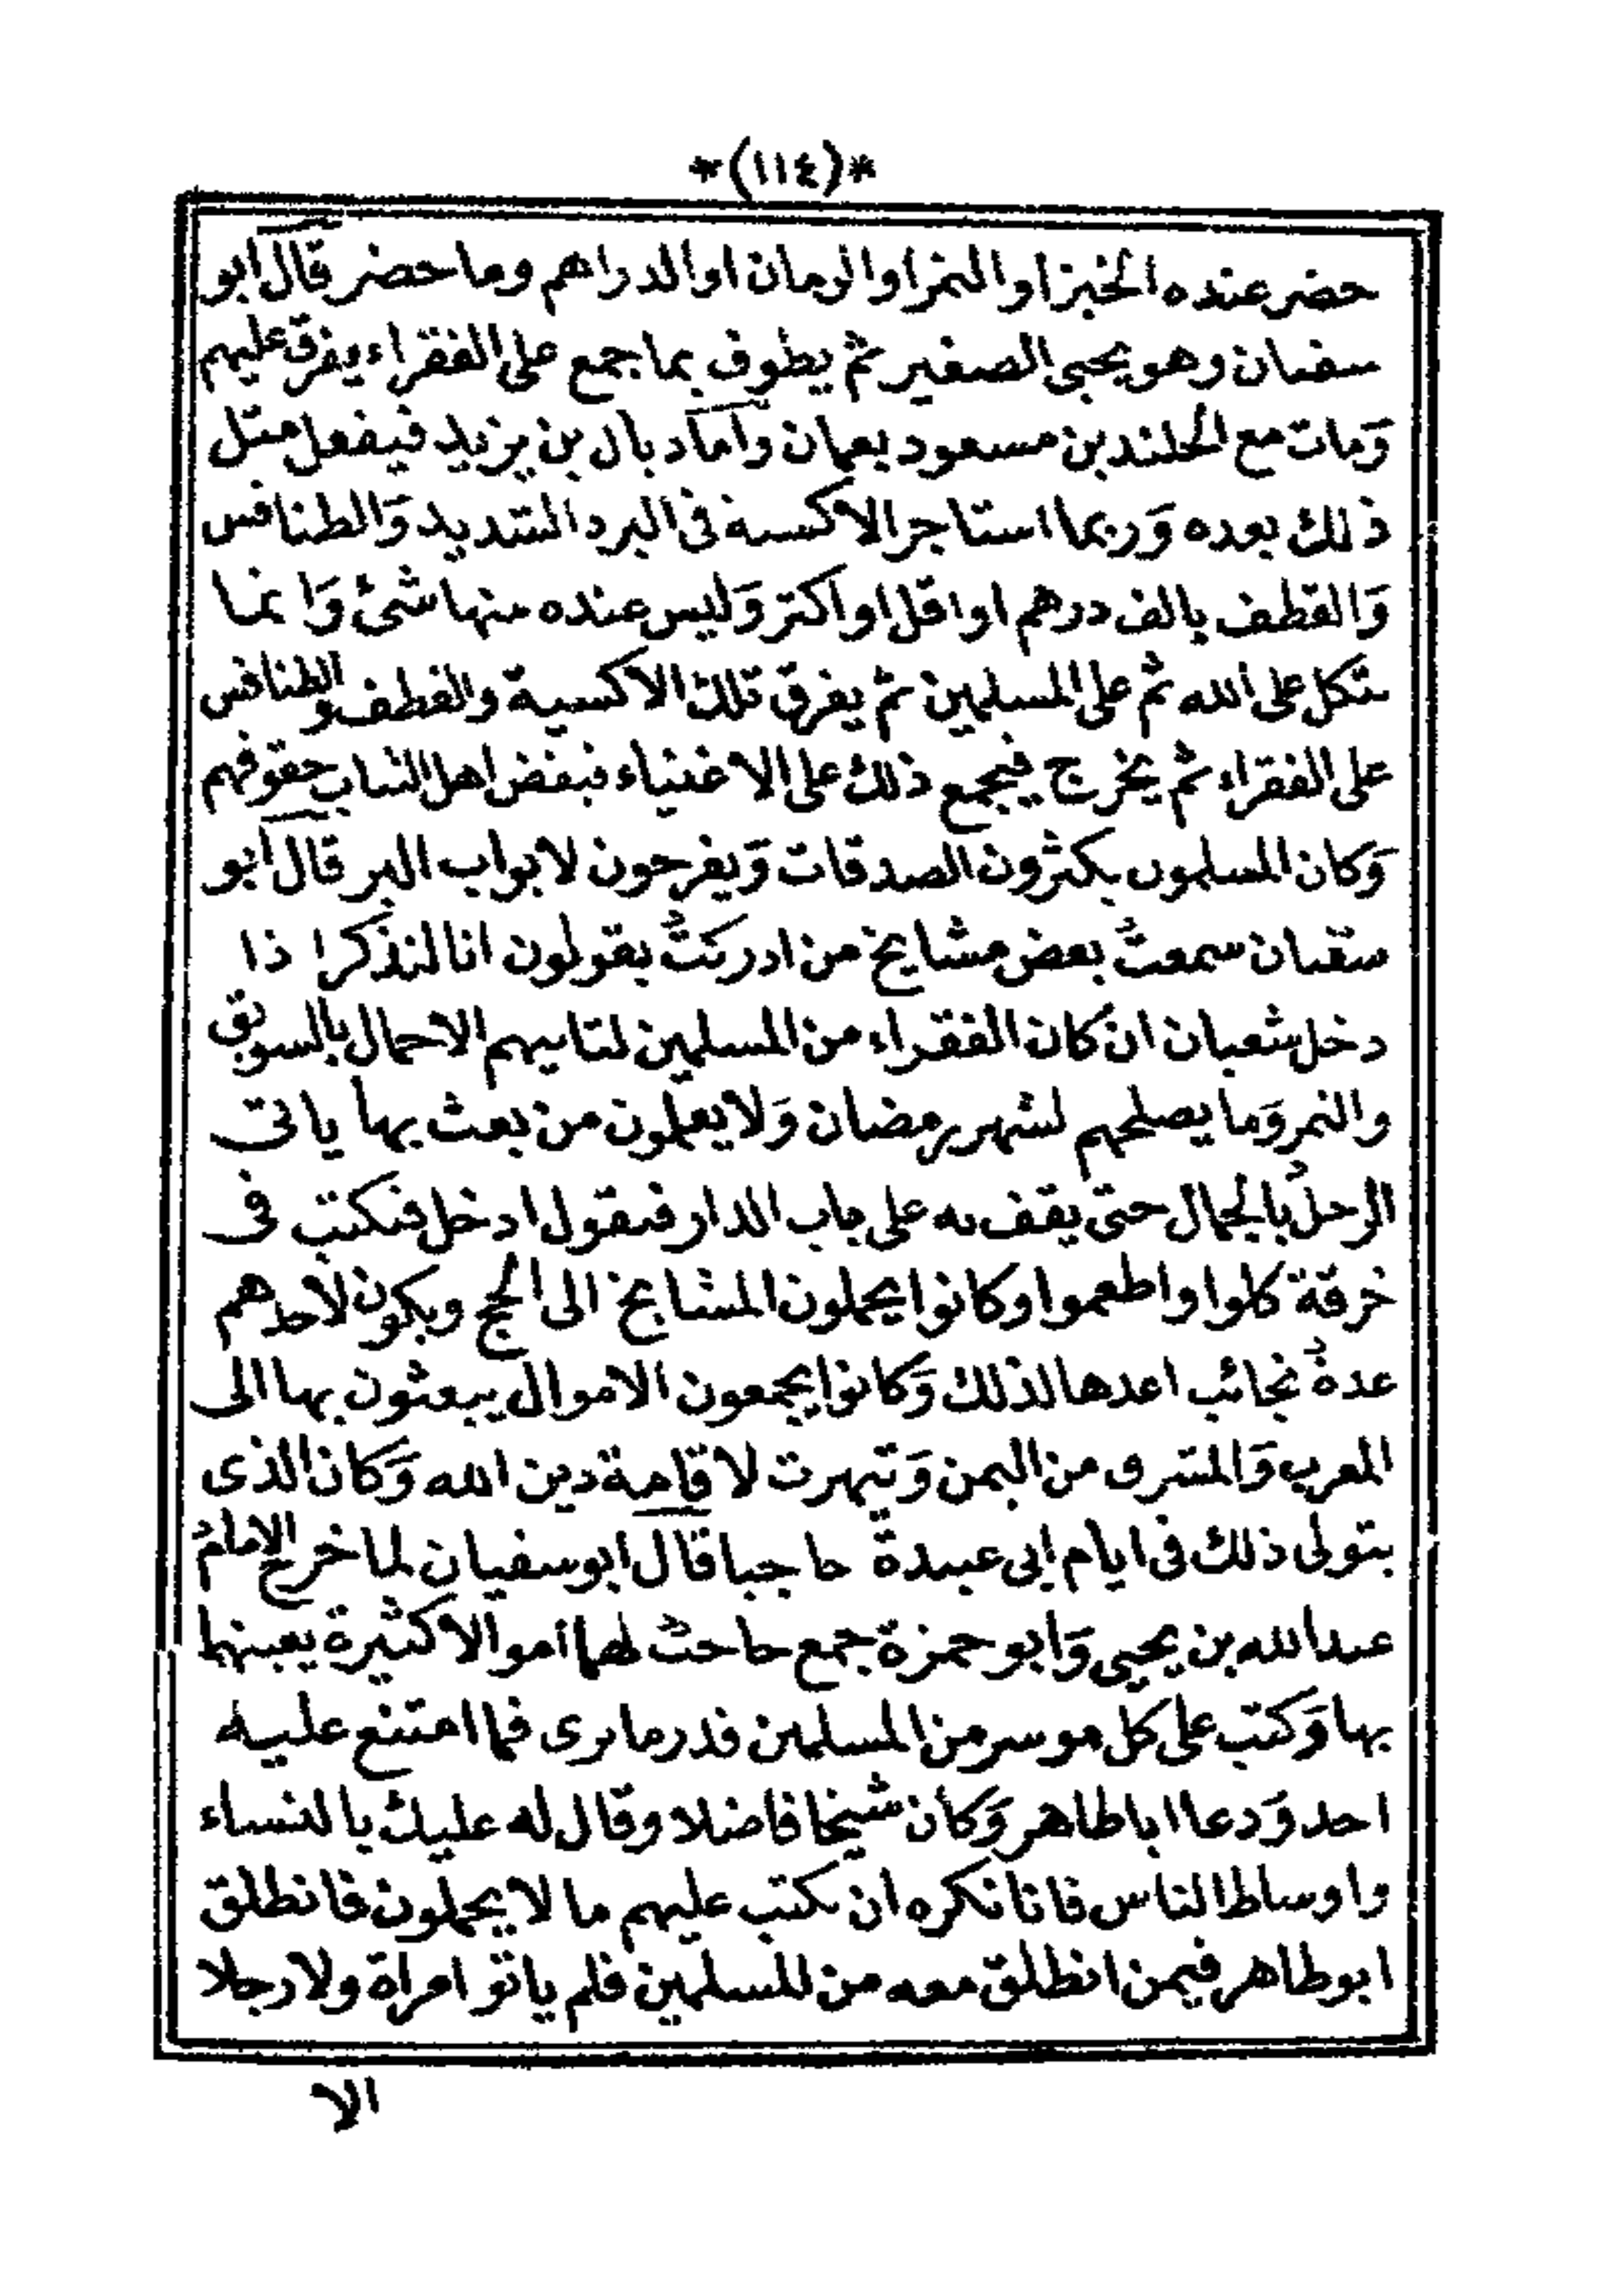 *(١١٤)*
حضر عنده الخبز او التمر او الرمان او الدراهم وما حضر قال ابو
سفيان وهو يحيى الصغير ثم يطوف بما جمع على الفقراء يفرق عليهم
وَمات مع الجلند بن مسعود بعمان وَاما دبال بن يزيد فيفعل مثل
ذلك بعده وَربما استاجر الاكسية فى البرد الشديد وَالطنافس
وَالقطف بالف درهم او اقل او اكثر وَليس عنده منها شئ وَانما
يتكل على الله ثم على المسلمين ثم يفرق تلك الاكسية والقطف والطنافس
على الفقراء ثم يخرج فيجمع ذلك على الاغنياء فيقضى اهل الثياب حقوقهم
وَكان المسلمون يكثرون الصدقات وَيفرحون لابواب البر قال ابو
سفيان سمعتُ بعض مشايخ من ادركتُ يقولون انا لنذكر اذا
دخل شعبان ان كان الفقراء من المسلمين لتاتيهم الاحمال بالسويق
والتمر وَما يصلحهم لشهر رمضان وَلا يعلمون من بعث بها ياتى
الرجلُ بالجمال حتى يقف به على باب الدار فيقول ادخل فيكتب فى
خرقة كلوا واطعموا وكانوا يحملون المشايخ الى الحج ويكون لاحدهم
عدةُ نجائب اعدها لذلك وَكانوا يجمعون الاموال يبعثون بها الى
المغرب وَالمشرق من اليمن وَتيهرت لاقامة دين الله وَكان الذى
يتولى ذلك فى ايام ابى عبيدة حاجبا قال ابو سفيان لما خرج الامامُ
عبد الله بن يحيى وَابو حمزة جمع حاجب لهما أموالا كثيرة يعينهما
بها وَكتب على كل موسر من المسلمين قدر ما يرى فما امتنع عليه
احد وَدعا اباطاهر وَكان شيخا فاضلا وقال له عليك بالنساء
واوساط الناس فانا نكره ان نكتب عليهم ما لا يحملون فانطلق
ابوطاهر فيمن انطلق معه من المسلمين فلم ياتو امراة ولا رجلا
الا